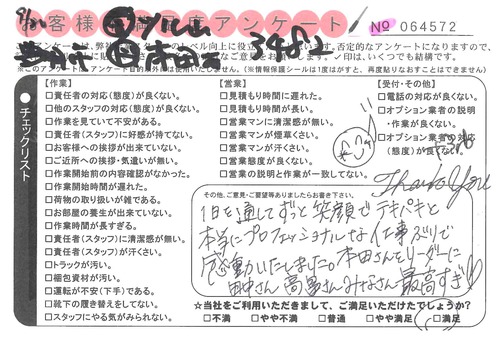 9/20
お客様満足度アンケート
No 064572
このアンケートは、弊社
否定的なアンケートになりますので、
✓印は、いくつでも結構です。
※このアンケートは、アンケート目的以外には使用いたしません。(※情報保護シールは1度はがすと、再度貼りなおすことはできません)
本田
3482
チェックリスト
【作業】
□責任者の対応(態度)が良くない。
□他のスタッフの対応(態度)が良くない。
□作業を見ていて不安がある。
□責任者(スタッフ)に好感が持てない。
□お客様への挨拶が出来ていない。
□ご近所への挨拶・気遣いが無い。
□作業開始前の内容確認がなかった。
□作業開始時間が遅れた。
□荷物の取り扱いが雑である。
□お部屋の養生が出来ていない。
□作業時間が長すぎる。
□責任者(スタッフ)に清潔感が無い。
□責任者(スタッフ)が汗くさい。
□トラックが汚い。
□梱包資材が汚い。
□運転が不安(下手)である。
□靴下の履き替えをしてない。
□スタッフにやる気がみられない。
【営業】
□見積もり時間に遅れた。
□見積もり時間が長い。
□営業マンに清潔感が無い。
□営業マンが煙草くさい。
□営業マンが汗くさい。
□営業態度が良くない。
□営業の説明と作業が一致してない。
【受付・その他】
□電話の対応が良くない。
□オプション業者の説明・作業が良くない。
□オプション業者の対応(態度)が良くない。
Thank you
その他、ご意見・ご要望等ありましたらお書き下さい。
1日を通してずっと笑顔でテキパキと
本当にプロフェッショナルな仕事ぶりで
感動いたしました。本田さんをリーダーに
田中さん 高畠さん みなさん最高すぎ!!
☆当社をご利用いただきまして、ご満足いただけたでしょうか?
□不満 □やや不満 □普通 □やや満足 □満足